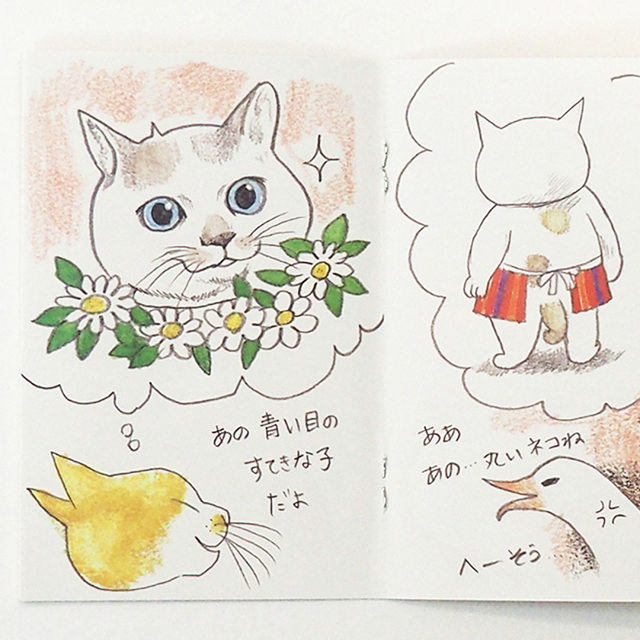 あの 青い目の
すてきな子
だよ
ああ
あの…丸いネコね
へーそう